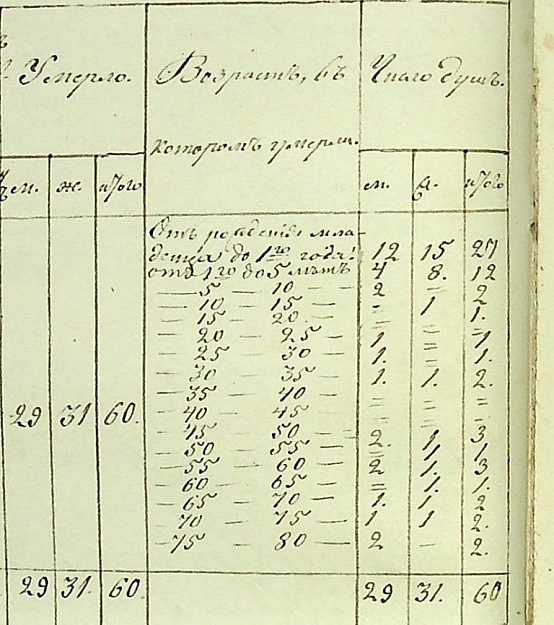 Умерло.
Возрастъ, въ
которомъ умерли.
Число душъ.
м. ж. итого
м. ж. итого
Отъ рожденія мла-
денца до 1го года: 12 15 27
отъ 1го до 5 лѣтъ 4 8. 12
— 5 — 10 — 2 = 2
— 10 — 15 — - 1 1.
— 15 — 20 — = = =
— 20 — 25 — 1. = 1
— 25 — 30 — 1. = 1.
— 30 — 35 — 1. 1. 2.
— 35 — 40 — = = =
— 40 — 45 — = = =
— 45 — 50 — 2. 1. 3
— 50 — 55 — = 1. 1.
— 55 — 60 — 2 1. 3
— 60 — 65 — = 1. 1.
— 65 — 70 — 1. 1. 2
— 70 — 75 — 1 1 2.
— 75 — 80 — 2 - 2.
29 31 60.
29 31. 60. 29 31. 60